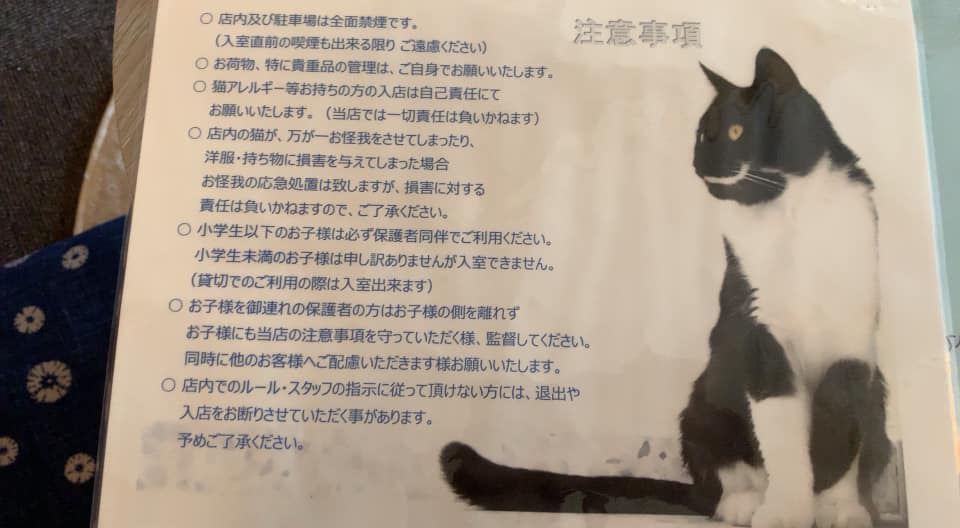 注意事項
○ 店内及び駐車場は全面禁煙です。
(入室直前の喫煙も出来る限り ご遠慮ください)
○ お荷物、特に貴重品の管理は、ご自身でお願いいたします。
○ 猫アレルギー等お持ちの方の入店は自己責任にて
お願いいたします。（当店では一切責任は負いかねます）
○ 店内の猫が、万が一お怪我をさせてしまったり、
洋服・持ち物に損害を与えてしまった場合
お怪我の応急処置は致しますが、損害に対する
責任は負いかねますので、ご了承ください。
○ 小学生以下のお子様は必ず保護者同伴でご利用ください。
小学生未満のお子様は申し訳ありませんが入室できません。
（貸切でのご利用の際は入室出来ます）
○ お子様を御連れの保護者の方はお子様の側を離れず
お子様にも当店の注意事項を守っていただく様、監督してください。
同時に他のお客様へご配慮いただきます様お願いいたします。
○ 店内でのルール・スタッフの指示に従って頂けない方には、退出や
入店をお断りさせていただく事があります。
予めご了承ください。